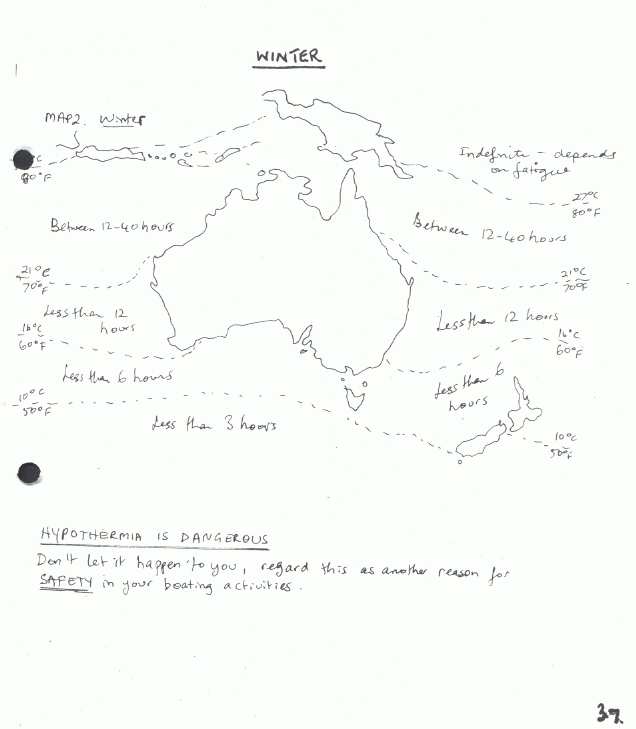 WINTER
MAP2. Winter
°C
80°F
Indefinite - depends
on fatigue
27°C
80°F
Between 12-40 hours
Between
12-40 hours
21°C
70°F
21°C
70°F
Less than 12
hours
Less than 12 hours
16°C
60°F
16°C
60°F
Less than 6 hours
Less than 6
hours
10°C
50°F
Less than 3 hours
10°C
50°F
HYPOTHERMIA IS DANGEROUS
Don't let it happen to you, regard this as another reason for
SAFETY in your boating activities.
37.